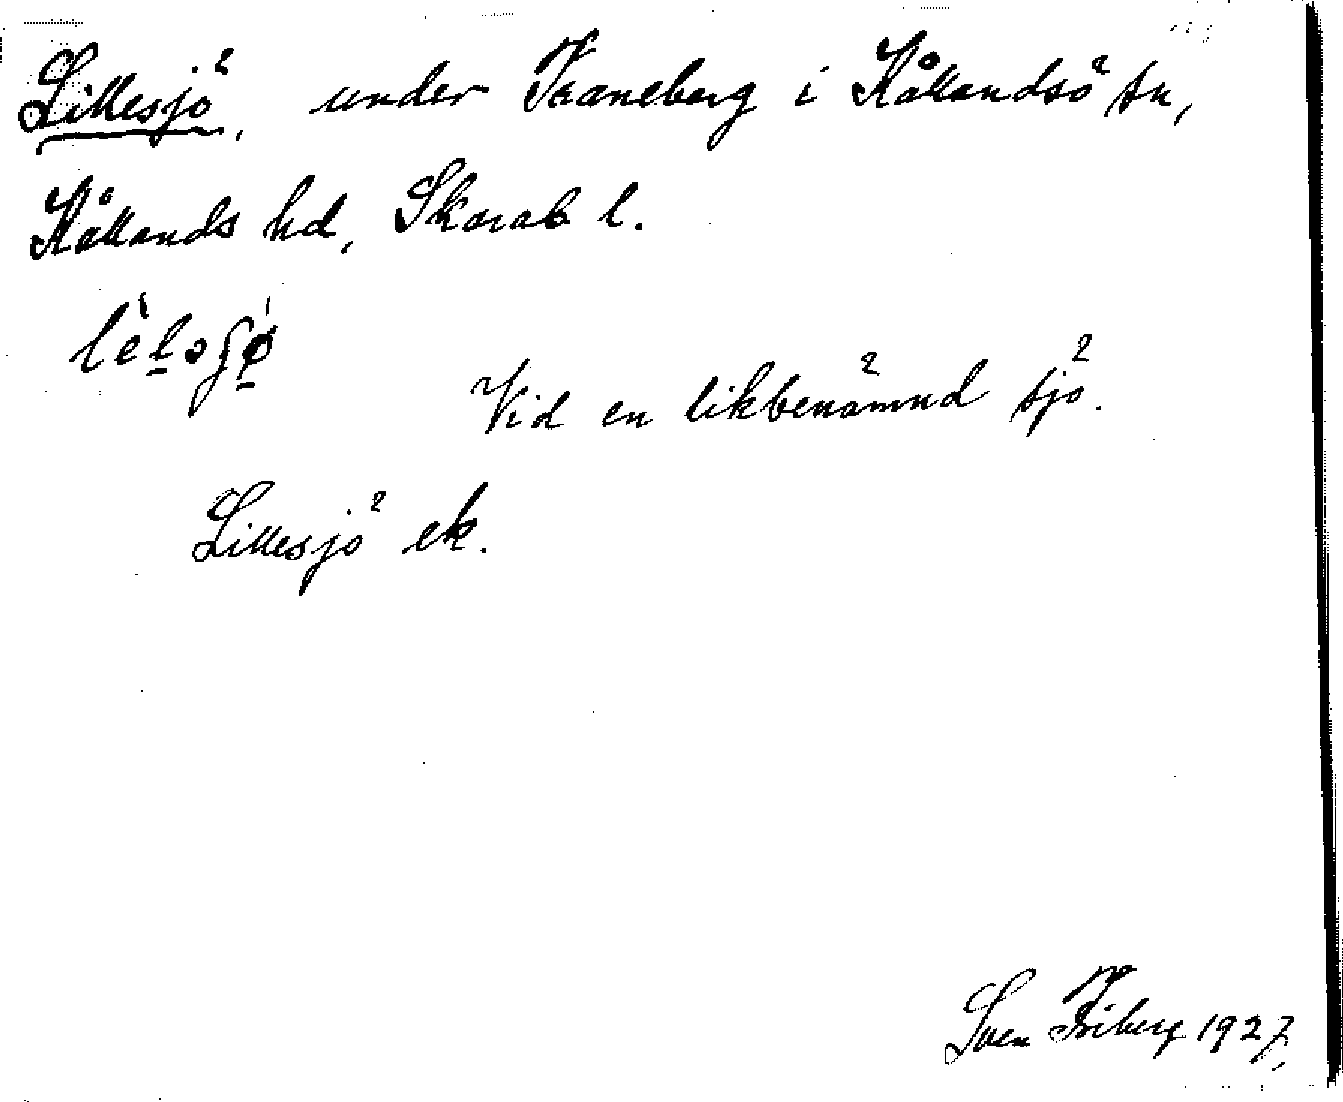 Lillesjö, under Traneberg i Kållandsö sn,
Kållands hd, Skarab l.
Vid en likbenämnd sjö.
Lillesjö ek.
Sven Friberg 1927,